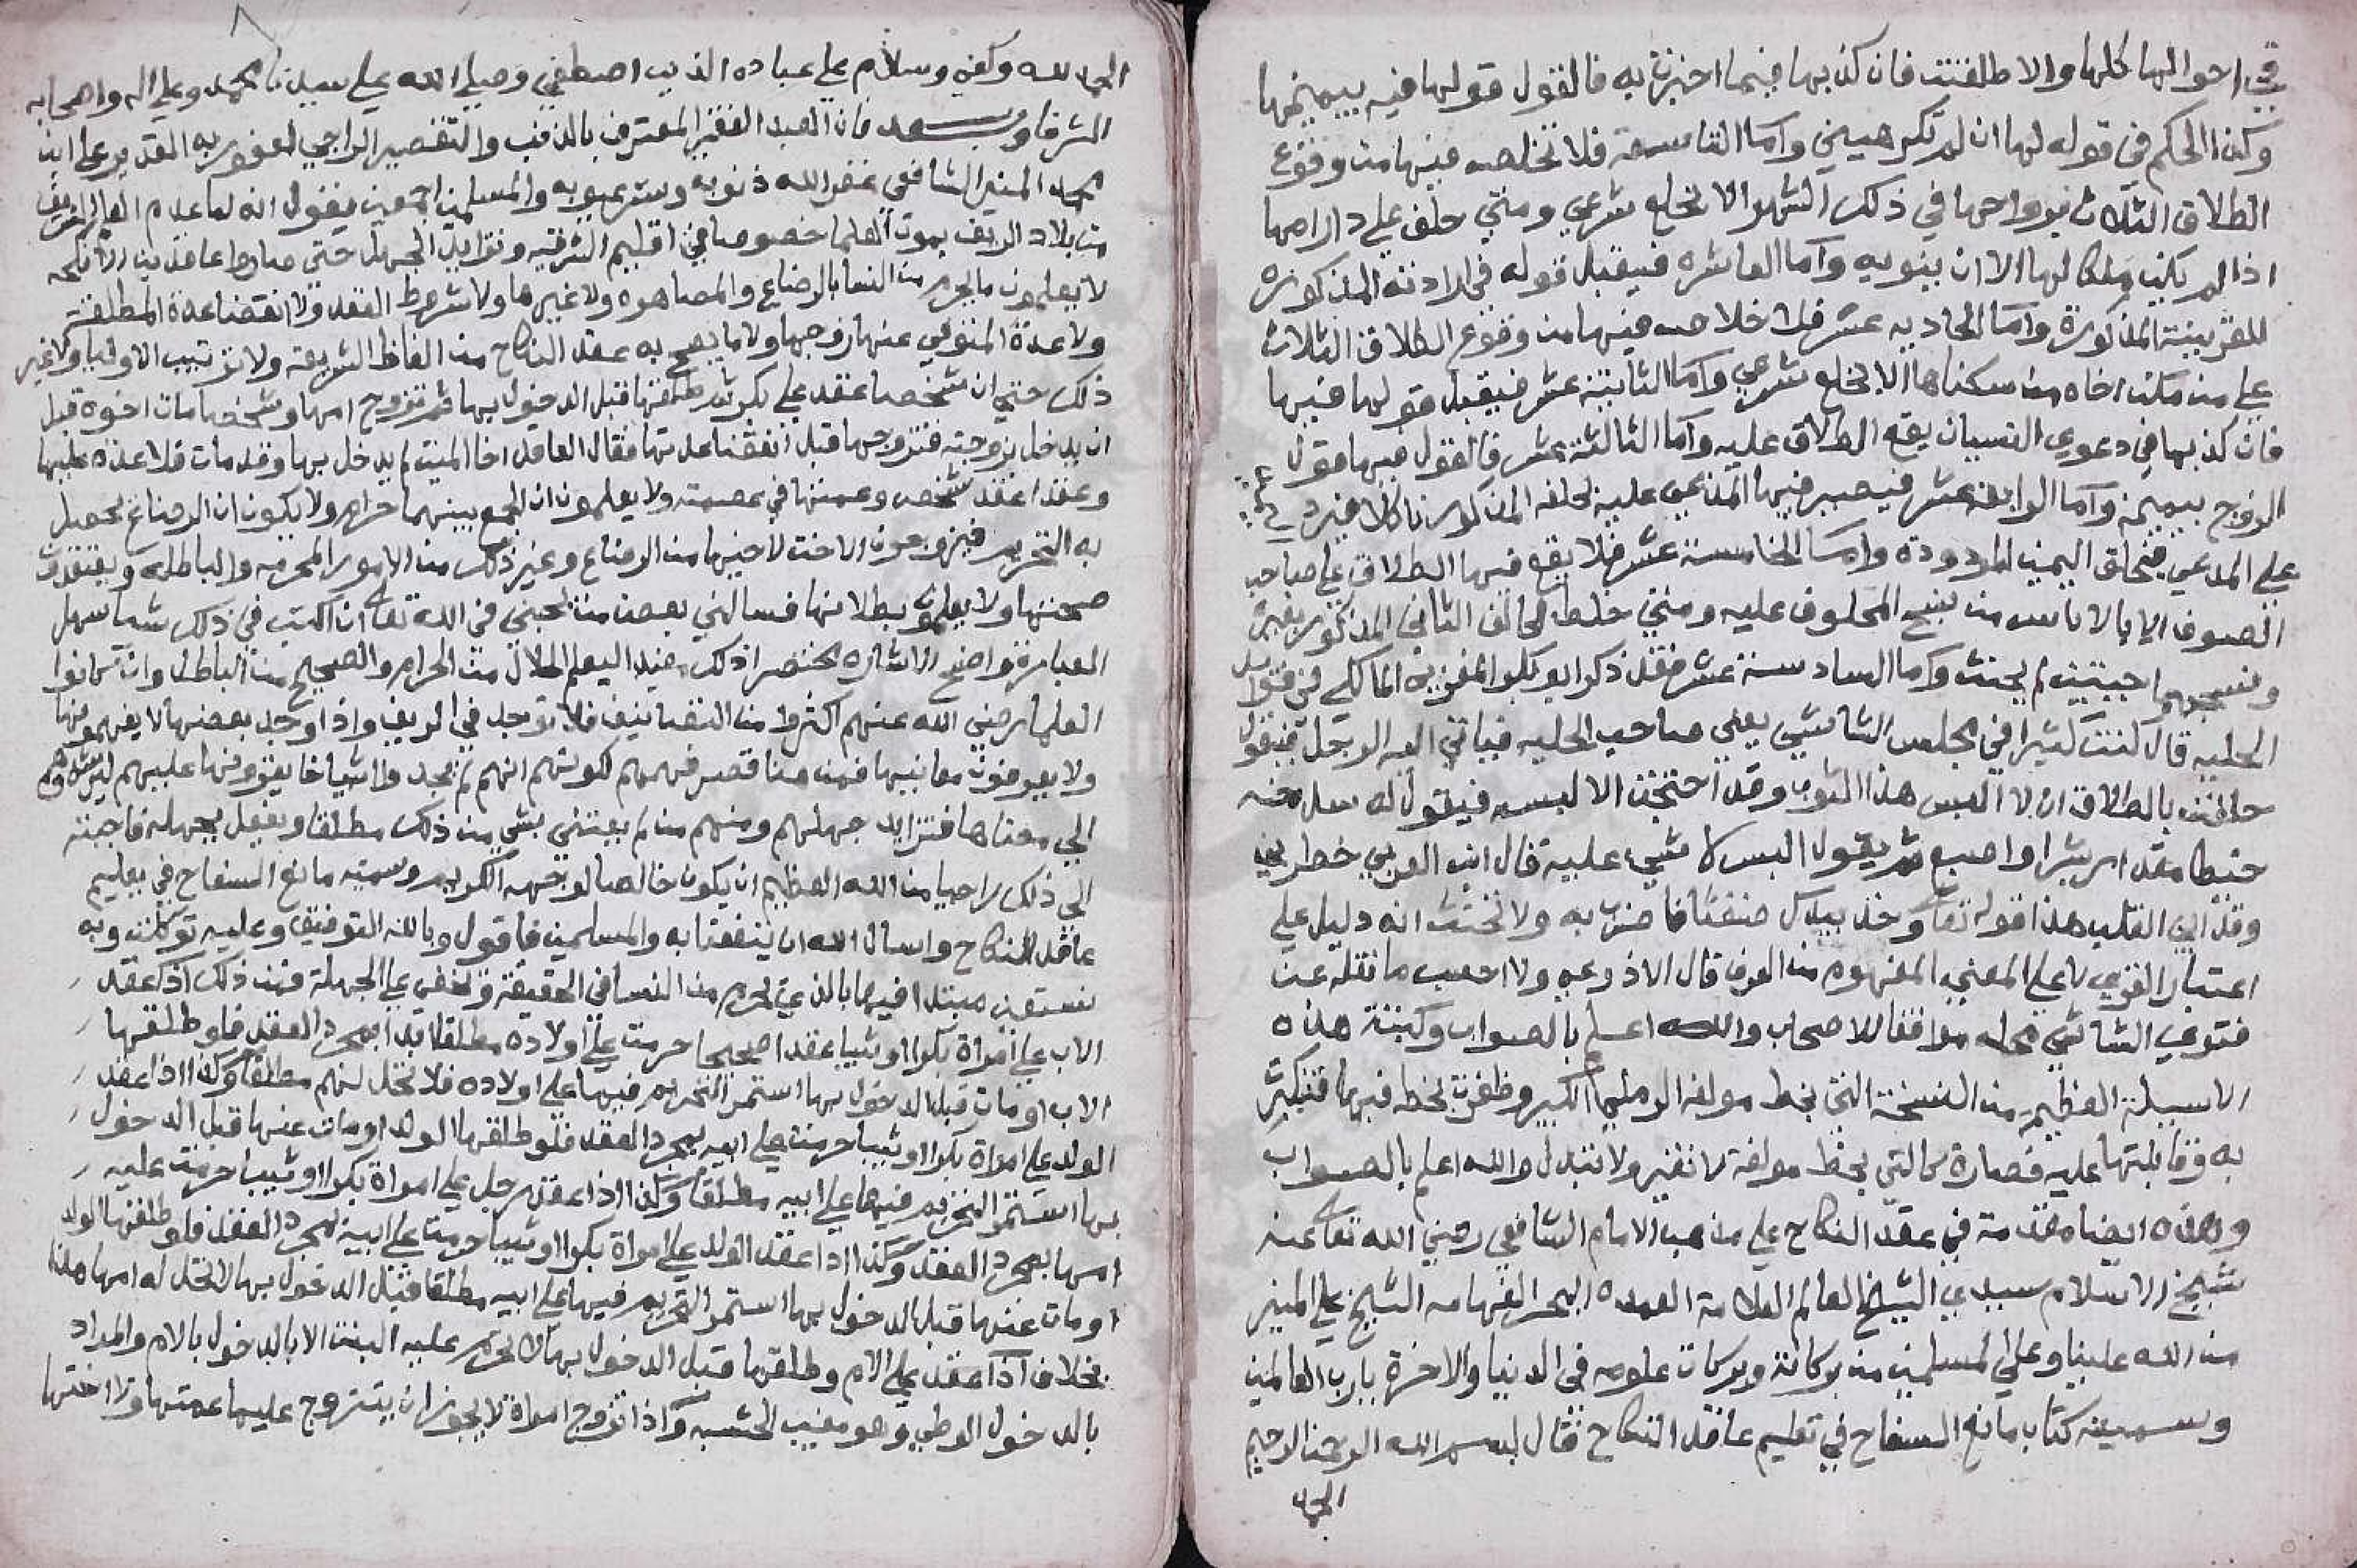 في احوالها كلها والا طلقت فان كذبها فيما اخبرت به فالقول قولها فيه بيمينها
وكذا الحكم في قوله لها ان لم تكرهيني واما التاسعة فلا تخلص فيها من وقوع
الطلاق الثلاث بزواجها في ذلك الشهر الا بخلع شرعي ومتى حلف على دار امها
اذا لم يكن ملكا لها الا ان ينويه واما العاشره فيقبل قوله في ارادته المذكوره
للقرينة المذكورة واما الحاديه عشر فلا خلاص فيها من وقوع الطلاق الثلاث
على من مكن اخاه من سكناها الا بخلع شرعي واما الثانية عشر فيقبل قولها فيها
فان كذبها في دعوي النسيان يقع الطلاق عليه واما الثالثة عشر فالقول فيها قول
الزوج بيمينه واما الرابعة عشر فيصير فيها المدعى عليه بحلفه المذكور ناكلا فيرد
على المدعي فيحلق اليمين المردودة واما الخامسة عشر فلا يقع فيها الطلاق على صاحب
الصوف الا بالاياس من نسج المحلوف عليه ومتى خلط الحالف الثاني المذكور بغيره
ونسجهما جبتين لم يحنث واما السادسة عشر فقد ذكر ابو بكر المغربي المالكي في
الحليه قال كنت كثيرا في مجلس الشاشي يعني صاحب الحليه فياتي اليه الرجل فيقول
حلفت بالطلاق ان لا البس هذا الثوب وقد احتجت الا لبسه فيقول له سل منه
خيطا مقدار شبر او اصبع ثم يقول البس لا شي عليه قال ابن العربي خطر لي
وقذ الي القلب هذا قوله تعالى وخذ بيدك ضغثا فاضرب به ولا تحنث انه دليل على
اعتبار القوي لا على المعنى المفهوم من العرف قال الاذرعي ولا احسب ما نقله عن
فتوي الشاشي محله موافقا للاصحاب والله اعلم بالصواب وكتبت هذه
الاسيلة العظيمه من النسخة التي بخط مولفه الرملي الكبير وظفرت بخطه فيها فتبركت
به وقابلتها عليه فصارة كالتي بخط مولفه لا تغير ولا تتبدل والله اعلم بالصواب
وهذه ايضا مقدمة في عقد النكاح على مذهب الامام الشافعي رضي الله تعالى عنه
شيخ الاسلام سيدي الشيخ العالم العلامة العمده البحر الفهامه الشيخ علي المنير
من الله علينا وعلى المسلمين من بركاته وبركات علومه في الدنيا والاخرة يا رب العالمين
وسميته كتاب مانع السفاح في تعليم عاقد النكاح فقال بسم الله الرحمن الرحيم
الحمد
الحمد لله وكفى وسلام على عباده الذين اصطفى وصلى الله على سيدنا محمد وعلى اله واصحابه
الشرفا وبعد فان العبد الفقير المعترف بالذنب والتقصير الراجي لعفو ربه القدير علي ابن
محمد المنير الشافعي غفر الله ذنوبه وستر عيوبه والمسلمين اجمعين يقول انه لما عدم
من بلاد الريف بموت العلما خصوصا في اقليم الشرقيه وتزايد الجهل حتى صاروا عاقدين الانكحه
لا يعلمون ما يحرم من النسا بالرضاع والمصاهره ولا غيرها ولا شروط العقد ولا انقضا عدة المطلقة
ولا عدة المتوفي عنها زوجها ولا ما يصح به عقد النكاح من الفاظ الشريعة ولا ترتيب الاوليا ولا غير
ذلك حتى ان شخصا عقد على بكر ثم طلقها قبل الدخول بها ثم تزوج امها وشخصا مات اخوه قبل
ان يدخل بزوجته فتزوجها قبل انقضا عدتها فقال العاقد اخا الميت لم يدخل بها وقد مات فلا عدة عليها
وعقد شخص وعمتها في عصمته ولا يعلمون ان الجمع بينهما حرام ولا يكون ان الرضاع يحصل
به التحريم فيزوجون الاخت لاخيها من الرضاع وغير ذلك من الامور المحرمه والباطله ويعتقدون
صحتها ولا يعلمون بطلانها فسالني بعض من يحبني في الله تعالى ان اكتب في ذلك شيا سهل
العبارة واضح الاشاره مختصرا اذكر فيه اليعلم الحلال من الحرام والصحيح من الباطل وان كانوا
العلما رضي الله عنهم اكثروا من التصانيف فلا توجد في الريف واذا وجد بعضها لا يفهمونها
ولا يعرفون معانيها فمن من قصر فهمهم لكونهم انهم لم يجدوا اشياخا يقرونها عليهم
الي معناها فتزايد جهلهم ومنهم من لم يعتني بشي من ذلك مطلقا ويفعل بجهله فاجبته
الى ذلك راجيا من الله العظيم ان يكون خالصا لوجهه الكريم وسميته مانع السفاح في تعليم
عاقد النكاح واسال الله ان ينفعنا به والمسلمين فاقول وبالله التوفيق وعليه توكلت وبه
نستعين مبتدا فيها بالذي يحرم من النسا في الحقيقة ويخفى على الجهلة فمن ذلك اذا عقد
الاب على امراة بكرا او ثيبا عقدا صحيحا حرمت على اولاده مطلقا ابدا بمجرد العقد فلو طلقها
الاب او مات قبل الدخول بها استمر التحريم فيها على اولاده فلا تحل لهم مطلقا وكذا اذا عقد
الولد على امراة بكرا او ثيبا حرمت على ابيه بمجرد العقد فلو طلقها الولد او مات عنها قبل الدخول
بها استمر التحريم فيها على ابيه مطلقا وكذا اذا عقد رجل على امراة بكرا او ثيبا حرمت عليه
امها بمجرد العقد وكذا اذا عقد الولد على امراة بكرا او ثيبا حرمت على ابيه بمجرد العقد فلو طلقها الولد
او مات عنها قبل الدخول بها استمر التحريم فيها على ابيه مطلقا قبل الدخول بها لا تحل له امها هذا
بخلاف اذا عقد على الام وطلقها قبل الدخول بها لا يحرم عليه البنت الا بالدخول بالام والمراد
بالدخول الوطي وهو مغيب الحشفه وكذا اذا تزوج امراة لا يجوز ان يتزوج عليها عمتها ولا اختها